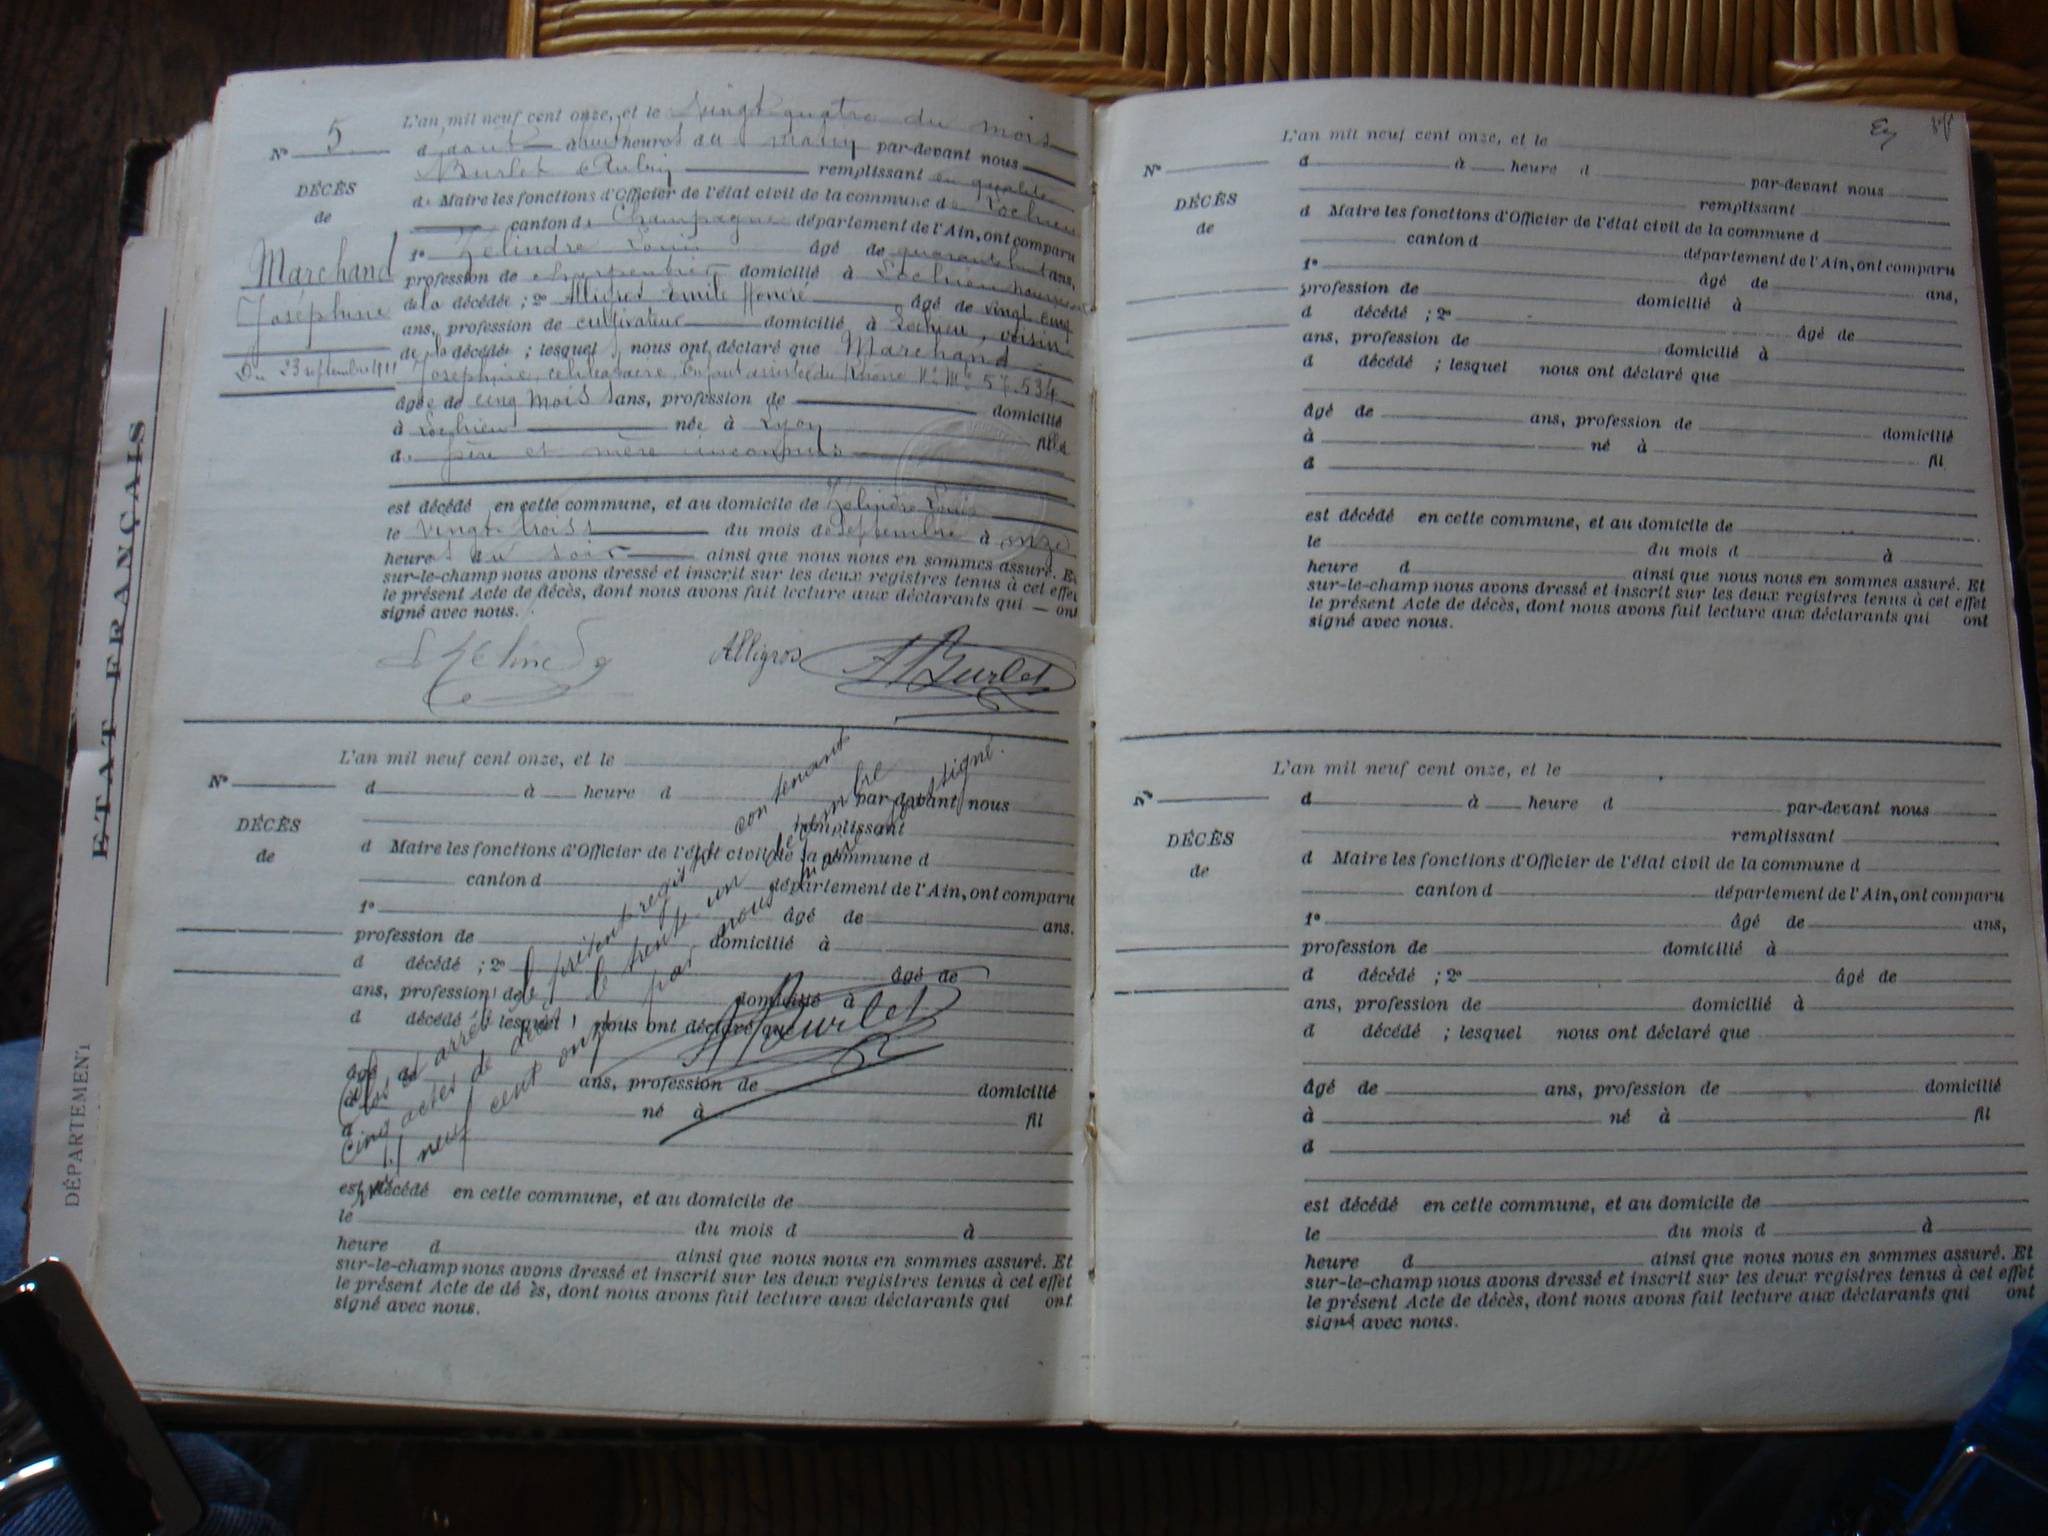 L'an mil neuf cent onze, et le vingt quatre du mois
N° 5
d'août à huit heures du matin par-devant nous
Burlet Aubin remplissant en qualité
DÉCÈS
de Maire les fonctions d'Officier de l'état civil de la commune de Lochieu
de
canton de Champagne département de l'Ain, ont comparu
1° Zélindre Louis âgé de quarante huit ans,
Marchand
profession de charpentier domicilié à Lochieu
Joséphine
de la décédée ; 2° Alligros Emile Honoré âgé de vingt cinq
ans, profession de cultivateur domicilié à Lochieu, voisin
de la décédée ; lesquels nous ont déclaré que Marchand
Du 23 septembre 1911
Joséphine, célibataire, Enfant assistée du Rhône N° Mle 57.534
âgée de cinq mois ans, profession de domicilié
à Lochieu née à Lyon fille
de père et mère inconnus
est décédé en cette commune, et au domicile de Zélindre Louis
le vingt-trois du mois de septembre à onze
heures du soir ainsi que nous nous en sommes assuré. Et
sur-le-champ nous avons dressé et inscrit sur les deux registres tenus à cet effet
le présent Acte de décès, dont nous avons fait lecture aux déclarants qui — ont
signé avec nous.
L Zelindre Alligros A Burlet
L'an mil neuf cent onze, et le
N°
d à heure d par-devant nous
remplissant
DÉCÈS
d Maire les fonctions d'Officier de l'état civil de la commune d
de
canton d département de l'Ain, ont comparu
1° âgé de ans.
profession de domicilié à
d décédé ; 2° âgé de
ans, profession de domicilié à
d décédé ; lesquel nous ont déclaré que
âgé de ans, profession de domicilié
à né à fil
d
est décédé en cette commune, et au domicile de
le du mois d à
heure d ainsi que nous nous en sommes assuré. Et
sur-le-champ nous avons dressé et inscrit sur les deux registres tenus à cet effet
le présent Acte de dé ès, dont nous avons fait lecture aux déclarants qui ont
signé avec nous.
Clos et arrêté le présent registre contenant
cinq actes de décès le trente un décembre
mil neuf cent onze par nous maire soussigné.
A Burlet
ETAT FRANÇAIS
DÉPARTEMENT
L'an mil neuf cent onze, et le
N°
d à heure d par-devant nous
remplissant
DÉCÈS
d Maire les fonctions d'Officier de l'état civil de la commune d
de
canton d département de l'Ain, ont comparu
1° âgé de ans,
profession de domicilié à
d décédé ; 2° âgé de
ans, profession de domicilié à
d décédé ; lesquel nous ont déclaré que
âgé de ans, profession de domicilié
à né à
d fil
est décédé en cette commune, et au domicile de
le du mois d à
heure d ainsi que nous nous en sommes assuré. Et
sur-le-champ nous avons dressé et inscrit sur les deux registres tenus à cet effet
le présent Acte de décès, dont nous avons fait lecture aux déclarants qui ont
signé avec nous.
L'an mil neuf cent onze, et le
N°
d à heure d par-devant nous
remplissant
DÉCÈS
d Maire les fonctions d'Officier de l'état civil de la commune d
de
canton d département de l'Ain, ont comparu
1° âgé de ans,
profession de domicilié à
d décédé ; 2° âgé de
ans, profession de domicilié à
d décédé ; lesquel nous ont déclaré que
âgé de ans, profession de domicilié
à né à fil
d
est décédé en cette commune, et au domicile de
le du mois d à
heure d ainsi que nous nous en sommes assuré. Et
sur-le-champ nous avons dressé et inscrit sur les deux registres tenus à cet effet
le présent Acte de décès, dont nous avons fait lecture aux déclarants qui ont
signé avec nous.